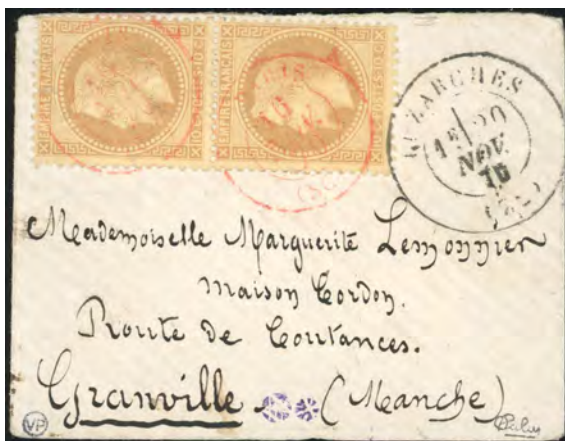 EMPIRE FRANÇAIS
EMPIRE FRANÇAIS
LUZARCHES
1E 20
NOV.
Mademoiselle Marguerite Lemonnier
maison Cordon.
Route de Coutances.
Granville (Manche)
VP